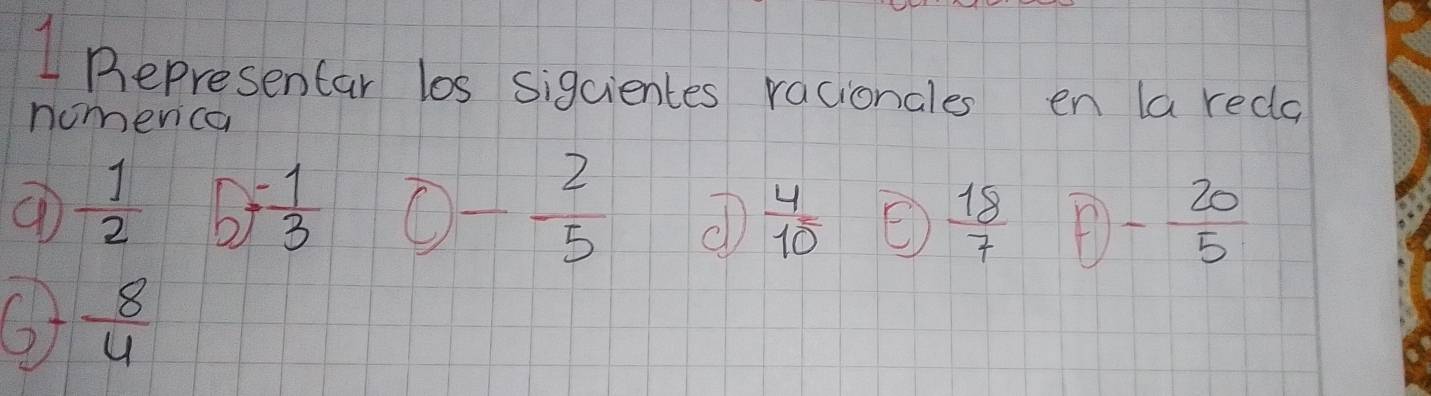 1 Representar los siguientes racionales en la recta
númerica
a) 1/2 b) -1/3 c) - 2/5 d) 4/10 E) 18/7 F) - 20/5
G) - 8/4